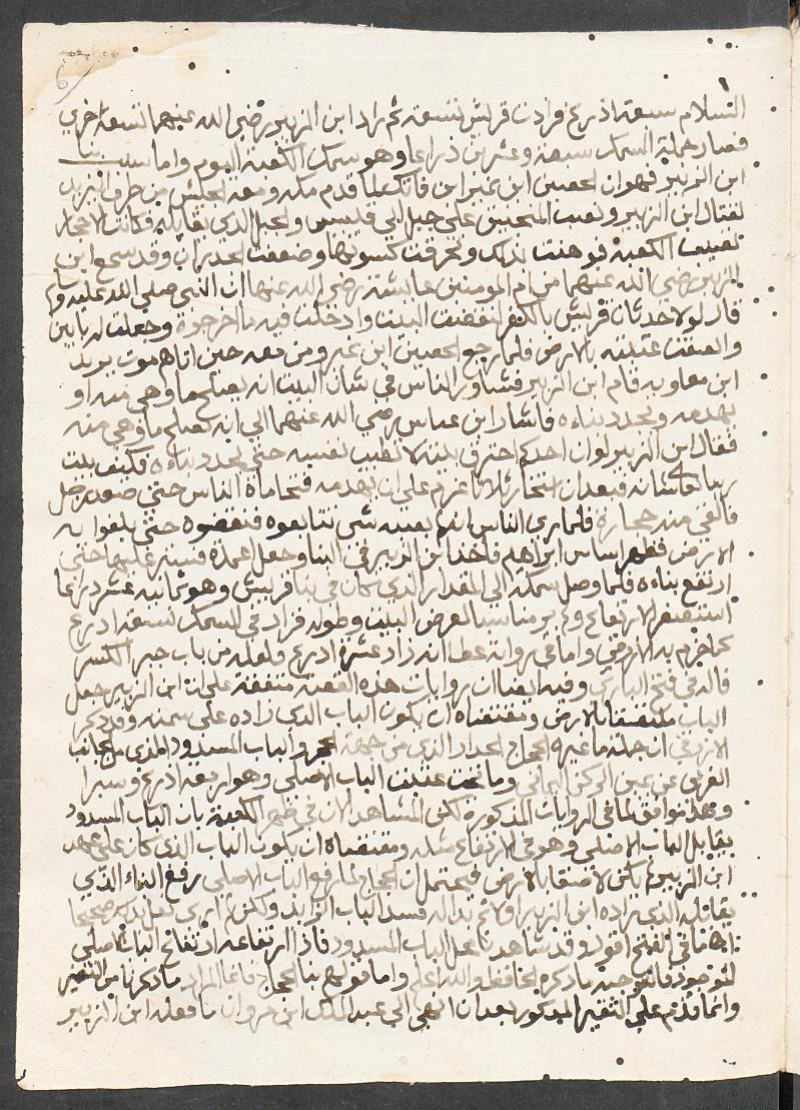 السلام سبعة اذرع فزادت قريش تسعة ثم زاد ابن الزبير رضي الله عنهما تسعة اخري
فصار جملة السمك سبعة وعشرين ذراعا وهو سمك الكعبة اليوم واما سبب بنا
ابن الزبير فهو ان الحصين ابن نمير ابن فاتك لما قدم مكة ومعه الجيش من طرف اليزيد
لقتال ابن الزبير ونصب المنجنيق علي جبل ابي قبيس والجبل الذي يقابله فكانت الاحجار
تصيب الكعبة فوهنت لذلك وتحرقت كسوتها وضعفت الجدران وقد سمع ابن
الزبير رضي الله عنهما من ام المومنين عايشة رضي الله عنها ان النبي صلي الله عليه وسلم
قال لولا حدثان قريش بالكفر لنقضت البيت وادخلت فيه ما اخرجوه وجعلت له بابين
والصقت عتبته بالارض فلما رجع الحصين ابن نمير ومن معه حين اتاهم موت يزيد
ابن معاوية قام ابن الزبير فشاور الناس في شان البيت انه يصلح ما وهي منه او
يهدمه ويجدد بناءه فاشار ابن عباس رضي الله عنهما الي انه يصلح ما وهي منه
فقال ابن الزبير لو ان احدكم احترق بيته لا تطيب نفسه حتي يجدد بناءه فكيف بيت
ربنا تعاشانه فبعد ان استخار ثلاثا عزم علي ان يهدمه فتحاماه الناس حتي صعد رجل
فالقي منه حجارة فلما راي الناس انه لم يصبه شي تتابعوه فنقضوه حتي بلغوا به
الارض فظهر اساس ابراهيم فاخذ ابن الزبير في البنا وجعل اعمدة فستر عليها حتي
ارتفع بناءه فلما وصل سمكه الي المقدار الذي كان في بنا قريش وهو ثمانية عشر ذراعا
استقصر الارتفاع ولم ير مناسبا لعرض البيت وطوله فزاد في السمك تسعة اذرع
كما جزم به الازرقي واما في رواية عطا انه زاد عشرة اذرع فلعله من باب جبر الكسر
قاله في فتح الباري وفيه ايضا ان روايات هذه القصة متفقة علي ان ابن الزبير جعل
الباب ملتصقا بالارض ومقتضاه ان يكون الباب الذي زاده علي سمته وقد ذكر
الازرقي ان جملة ما غيره الحجاج الجدار الذي من جهة الحجر والباب المسدود الذي من الجانب
الغربي عن يمين الركن اليماني وما تحت عتبة الباب الاصلي وهو اربعة اذرع وشبرا
وهذا موافق لما في الروايات المذكورة لكن المشاهد الان في ظهر الكعبة بان الباب المسدود
يقابل الباب الاصلي وهو في الارتفاع مثله ومقتضاه ان يكون الباب الذي كان علي عهد
ابن الزبير لم يكن لاصقا بالارض فيحتمل ان الحجاج لما رفع الباب الاصلي رفع البناء الذي
يقابله الذي زاده ابن الزبير اولا ثم بدا له فسد الباب الزايد ولكن لم ار
ما في الفتح اقول وقد شاهدنا محل الباب المسدود فاذا ارتفاعه ارتفاع الباب الاصلي
الموجود فالتوجيه ما ذكره الحافظ والله اعلم واما قولهم بنا الحجاج فانما المراد ما ذكرنا من التغير
وانما قدم علي التغير المذكور بعد ان انهي الي عبد الملك ابن مروان ما فعله ابن الزبير